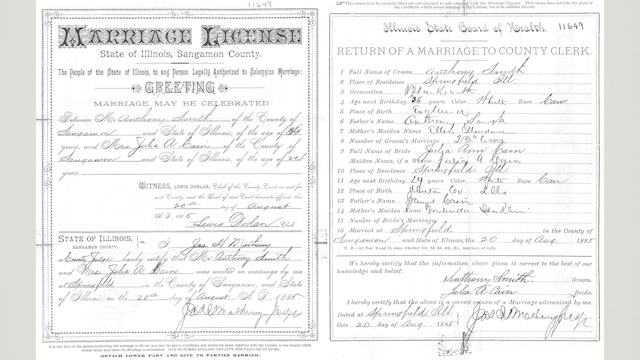 11649
MARRIAGE LICENSE
State of Illinois, Sangamon County.
The People of the State of Illinois, to any Person Legally Authorized to Solemnize Marriage:
GREETING
MARRIAGE MAY BE CELEBRATED
Between Mr Anthony Smith of the County of
Sangamon and State of Illinois, of the age of
years, and Mrs Julia A. Cain of the County of
Sangamon and State of Illinois, of the age of
years
WITNESS, LEWIS DORLAN, Clerk of the County Court in and for
said County, and the Seal of said Court hereunto affixed, this
20th day of August
A. D. 1885
Lewis Dorlan Clerk
STATE OF ILLINOIS,
SANGAMON COUNTY.
I Jas H Matheny
County Judge hereby certify that Mr Anthony Smith
and Mrs Julia A Cain were united in marriage by me
at Springfield in the County of Sangamon, and State
of Illinois, on the 20th day of August A. D. 1885
Jas H Matheny
DETACH LOWER PART AND GIVE TO PARTIES MARRIED.
Illinois State Board of Health.
11649
RETURN OF A MARRIAGE TO COUNTY CLERK.
1 Full Name of Groom Anthony Smith
2 Place of Residence Springfield Ill
3 Occupation
4 Age next Birthday 36 years. Color White Race Cau
5 Place of Birth England
6 Father's Name Anthony Smith
7 Mother's Maiden Name Ellen
8 Number of Groom's Marriage
9 Full Name of Bride Julia Ann Cain
Maiden Name, if a Widow Julia A
10 Place of Residence Springfield Ills
11 Age next Birthday 24 years Color White Race Cau
12 Place of Birth Co Ills
13 Father's Name Cain
14 Mother's Maiden Name
15 Number of Bride's Marriage
16 Married at Springfield in the County of
Sangamon and State of Illinois, the 20 day of Aug 1885
We hereby certify that the information above given is correct to the best of our
knowledge and belief.
Anthony Smith Groom.
Julia A. Cain Bride.
I hereby certify that the above is a correct return of a Marriage solemnized by me.
Dated at Springfield Ill
this 20 day of Aug 1885
Jas H Matheny